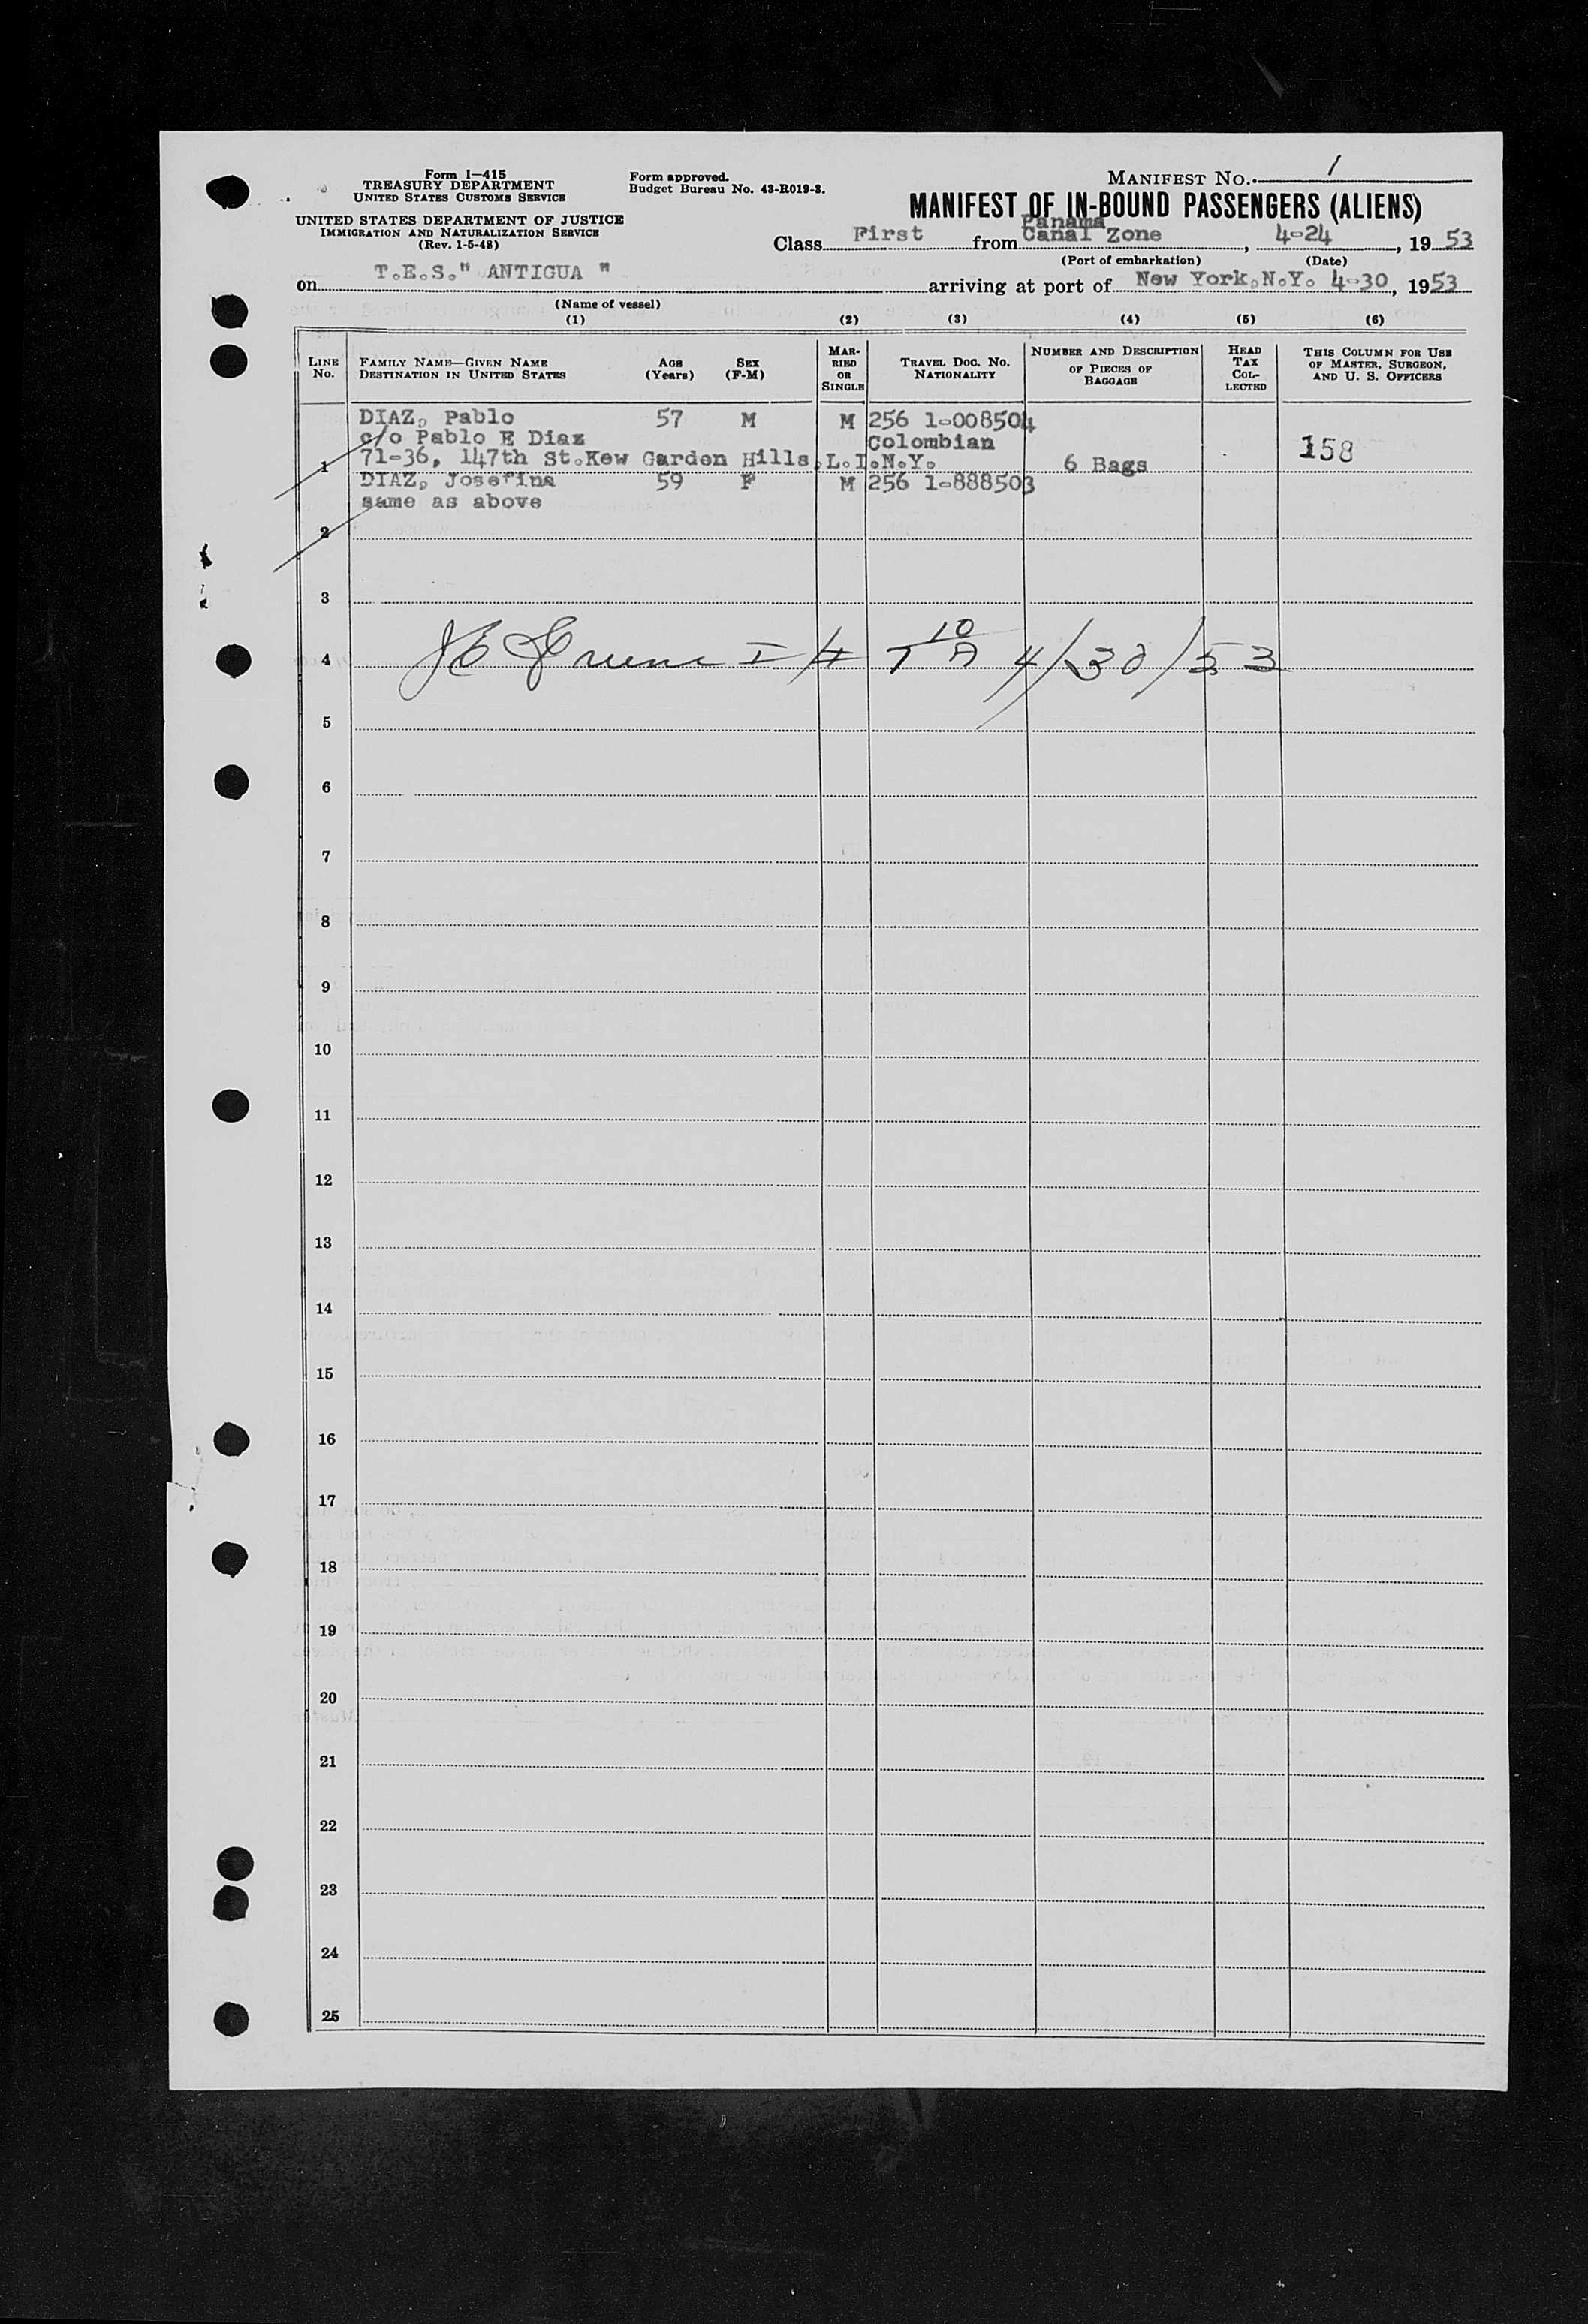 Form I—415
TREASURY DEPARTMENT
UNITED STATES CUSTOMS SERVICE
UNITED STATES DEPARTMENT OF JUSTICE
IMMIGRATION AND NATURALIZATION SERVICE
(Rev. 1-5-48)
Form approved.
Budget Bureau No. 43-R019-3.
MANIFEST NO. 1
MANIFEST OF IN-BOUND PASSENGERS (ALIENS)
Panama
Class First from Canal Zone, 4-24, 1953
(Port of embarkation) (Date)
on T.E.S." ANTIGUA " arriving at port of New York,N.Y. 4-30, 1953
(Name of vessel)
(1) (2) (3) (4) (5) (6)
LINE No.
FAMILY NAME—GIVEN NAME
DESTINATION IN UNITED STATES
AGE (Years)
SEX (F-M)
MARRIED OR SINGLE
TRAVEL DOC. NO. NATIONALITY
NUMBER AND DESCRIPTION OF PIECES OF BAGGAGE
HEAD TAX COLLECTED
THIS COLUMN FOR USE OF MASTER, SURGEON, AND U. S. OFFICERS
DIAZ, Pablo 57 M M 256 1-008504
c/o Pablo E Diaz Colombian
1 71-36, 147th St.Kew Garden Hills,L.I.N.Y. 6 Bags 158
DIAZ, Josefina 59 F M 256 1-888503
same as above
2
3
10
4 4/30/53
5
6
7
8
9
10
11
12
13
14
15
16
17
18
19
20
21
22
23
24
25